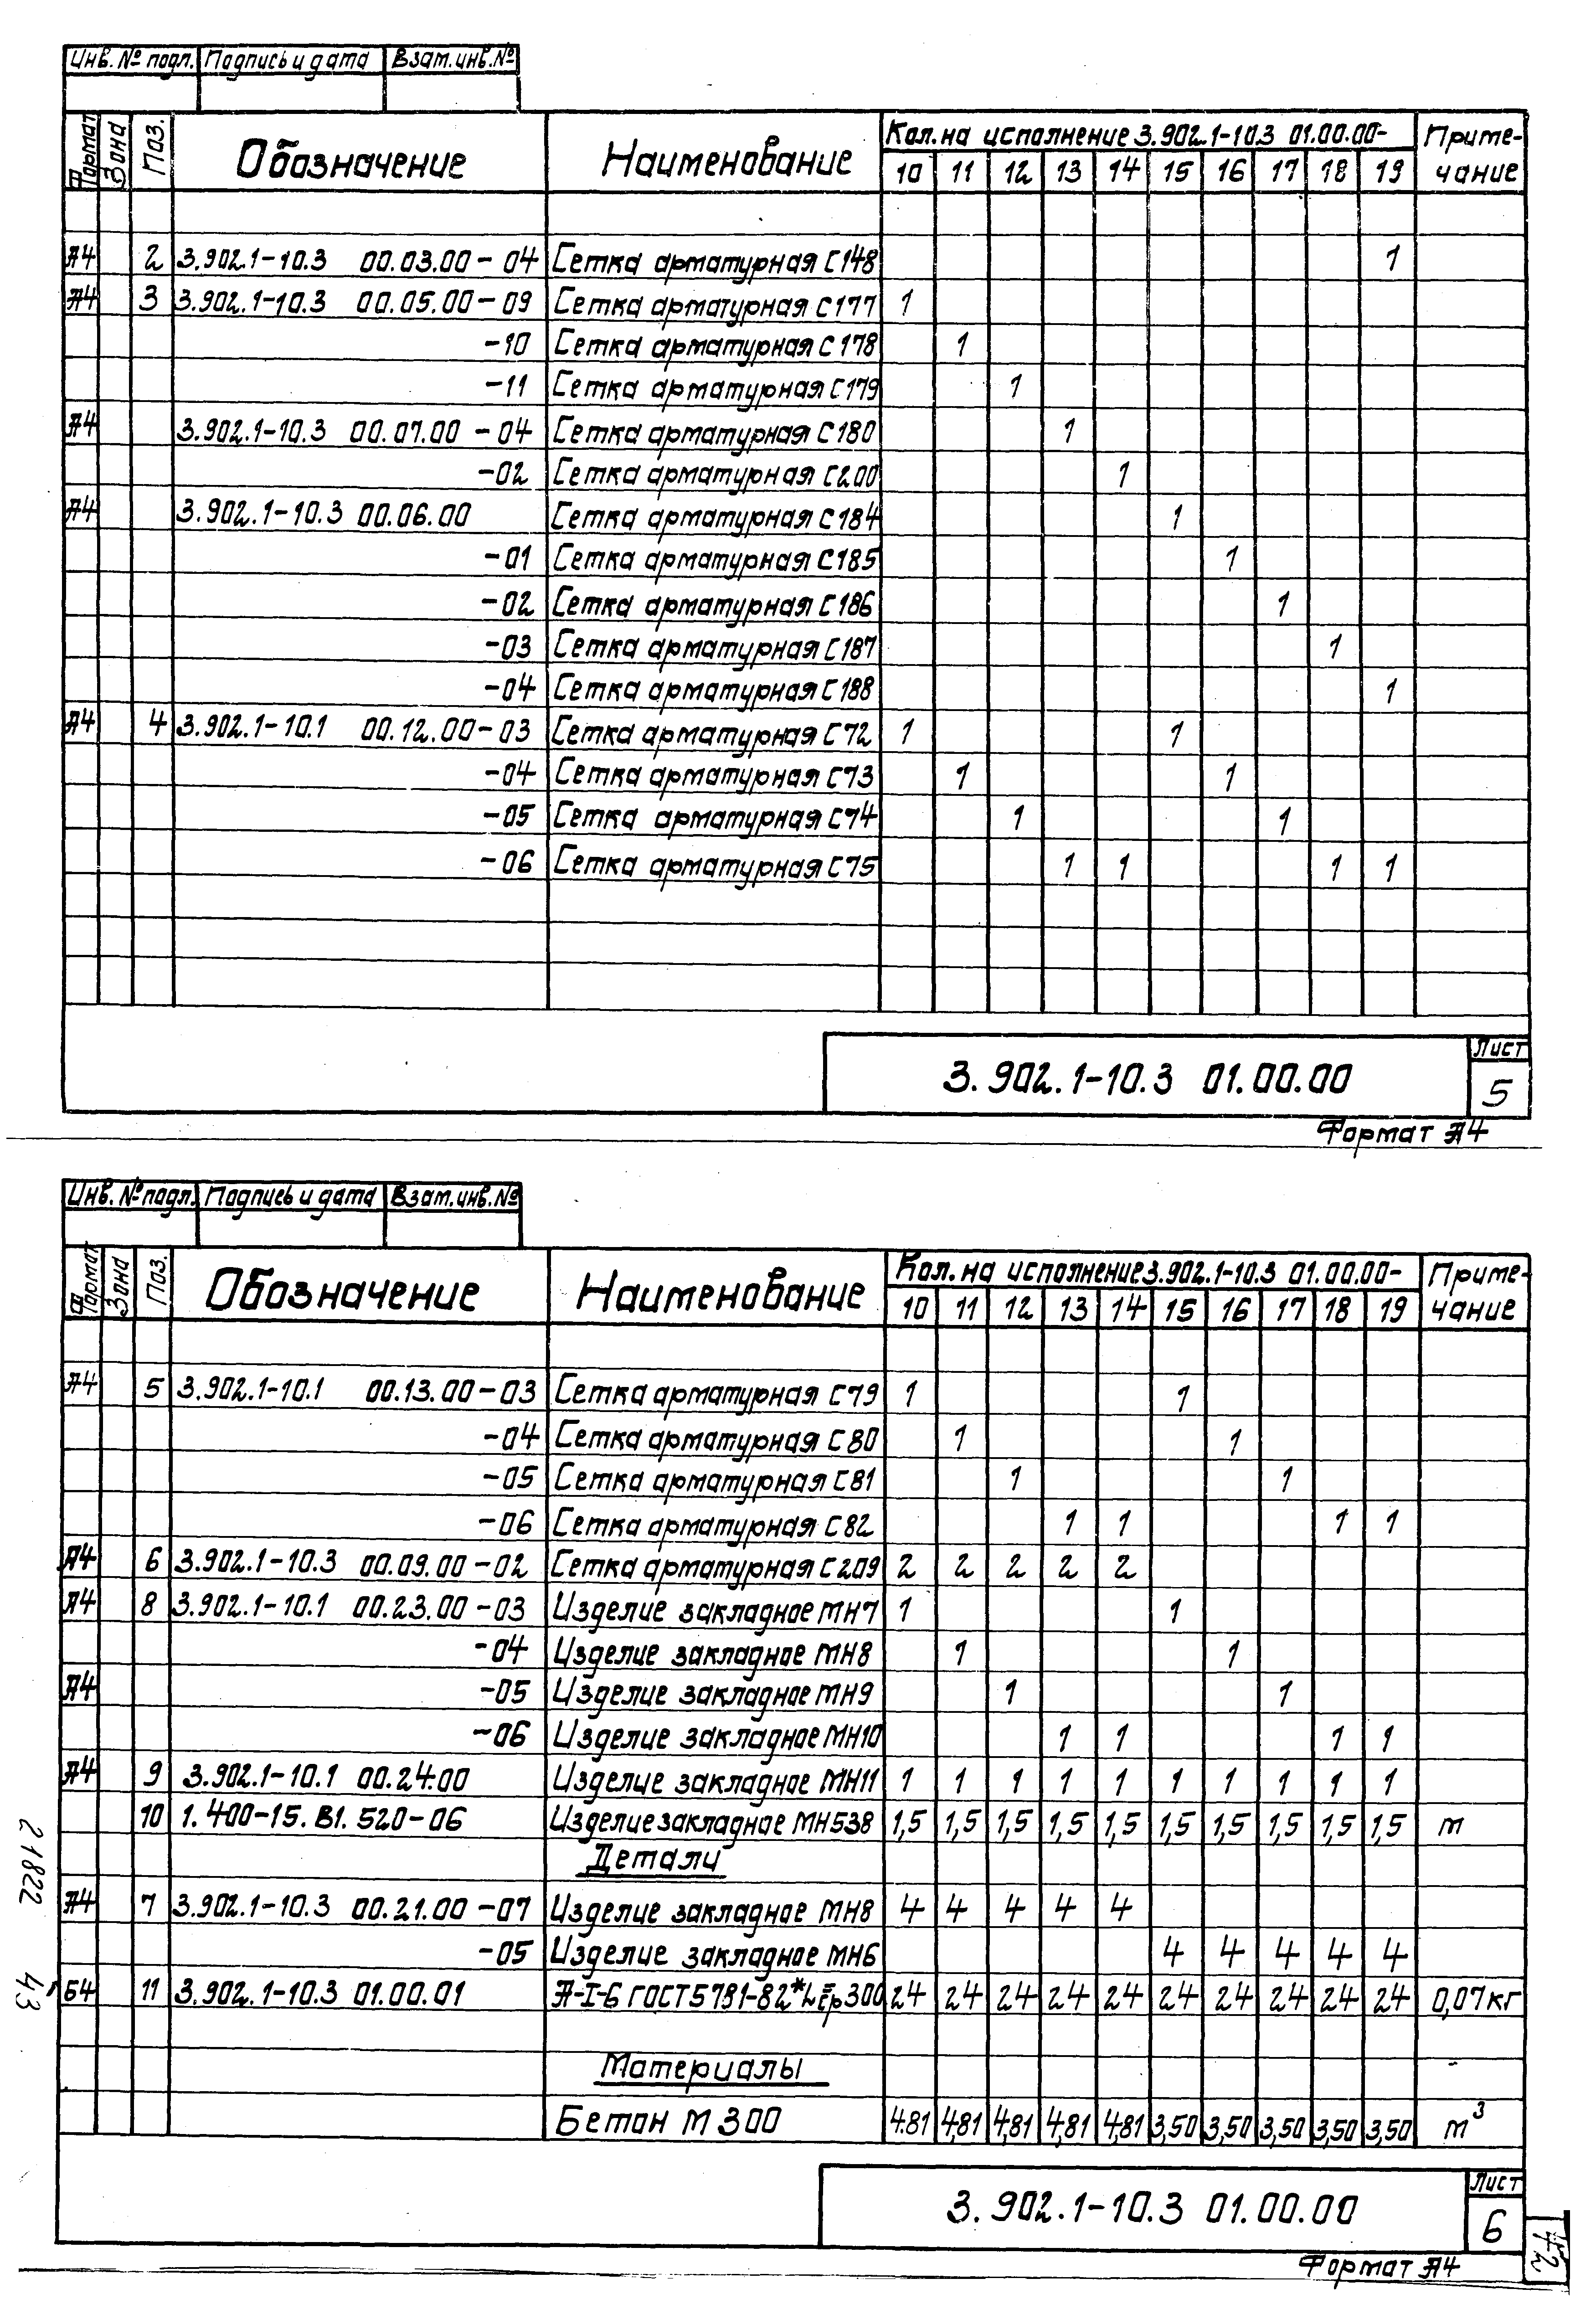 Инв. № подл. Подпись и дата Взам. инв. №
Формат Зона Поз. Обозначение Наименование Кол. на исполнение 3.902.1-10.3 01.00.00- Приме-
10 11 12 13 14 15 16 17 18 19 чание
А4 2 3.902.1-10.3 00.03.00-04 Сетка арматурная С148 1
А4 3 3.902.1-10.3 00.05.00-09 Сетка арматурная С177 1
-10 Сетка арматурная С178 1
-11 Сетка арматурная С179 1
А4 3.902.1-10.3 00.07.00-04 Сетка арматурная С180 1
-02 Сетка арматурная С200 1
А4 3.902.1-10.3 00.06.00 Сетка арматурная С184 1
-01 Сетка арматурная С185 1
-02 Сетка арматурная С186 1
-03 Сетка арматурная С187 1
-04 Сетка арматурная С188 1
А4 4 3.902.1-10.1 00.12.00-03 Сетка арматурная С72 1 1
-04 Сетка арматурная С73 1 1
-05 Сетка арматурная С74 1 1
-06 Сетка арматурная С75 1 1 1 1
3.902.1-10.3 01.00.00 Лист
5
Формат А4
Инв. № подл. Подпись и дата Взам. инв. №
Формат Зона Поз. Обозначение Наименование Кол. на исполнение 3.902.1-10.3 01.00.00- Приме-
10 11 12 13 14 15 16 17 18 19 чание
А4 5 3.902.1-10.1 00.13.00-03 Сетка арматурная С79 1 1
-04 Сетка арматурная С80 1 1
-05 Сетка арматурная С81 1 1
-06 Сетка арматурная С82 1 1 1 1
А4 6 3.902.1-10.3 00.09.00-02 Сетка арматурная С209 2 2 2 2 2
А4 8 3.902.1-10.1 00.23.00-03 Изделие закладное МН7 1 1
-04 Изделие закладное МН8 1 1
А4 -05 Изделие закладное МН9 1 1
-06 Изделие закладное МН10 1 1 1 1
А4 9 3.902.1-10.1 00.24.00 Изделие закладное МН11 1 1 1 1 1 1 1 1 1 1
10 1.400-15.В1.520-06 Изделие закладное МН538 1,5 1,5 1,5 1,5 1,5 1,5 1,5 1,5 1,5 1,5 м
Детали
А4 7 3.902.1-10.3 00.21.00-07 Изделие закладное МН8 4 4 4 4 4
-05 Изделие закладное МН6 4 4 4 4 4
Б4 11 3.902.1-10.3 01.00.01 А-I-6 ГОСТ 5781-82* 300 24 24 24 24 24 24 24 24 24 24 0,07кг
Материалы
Бетон М300 4.81 4,81 4,81 4,81 4,81 3,50 3,50 3,50 3,50 3,50 м³
3.902.1-10.3 01.00.00 Лист
6
Формат А4
21822 43
42